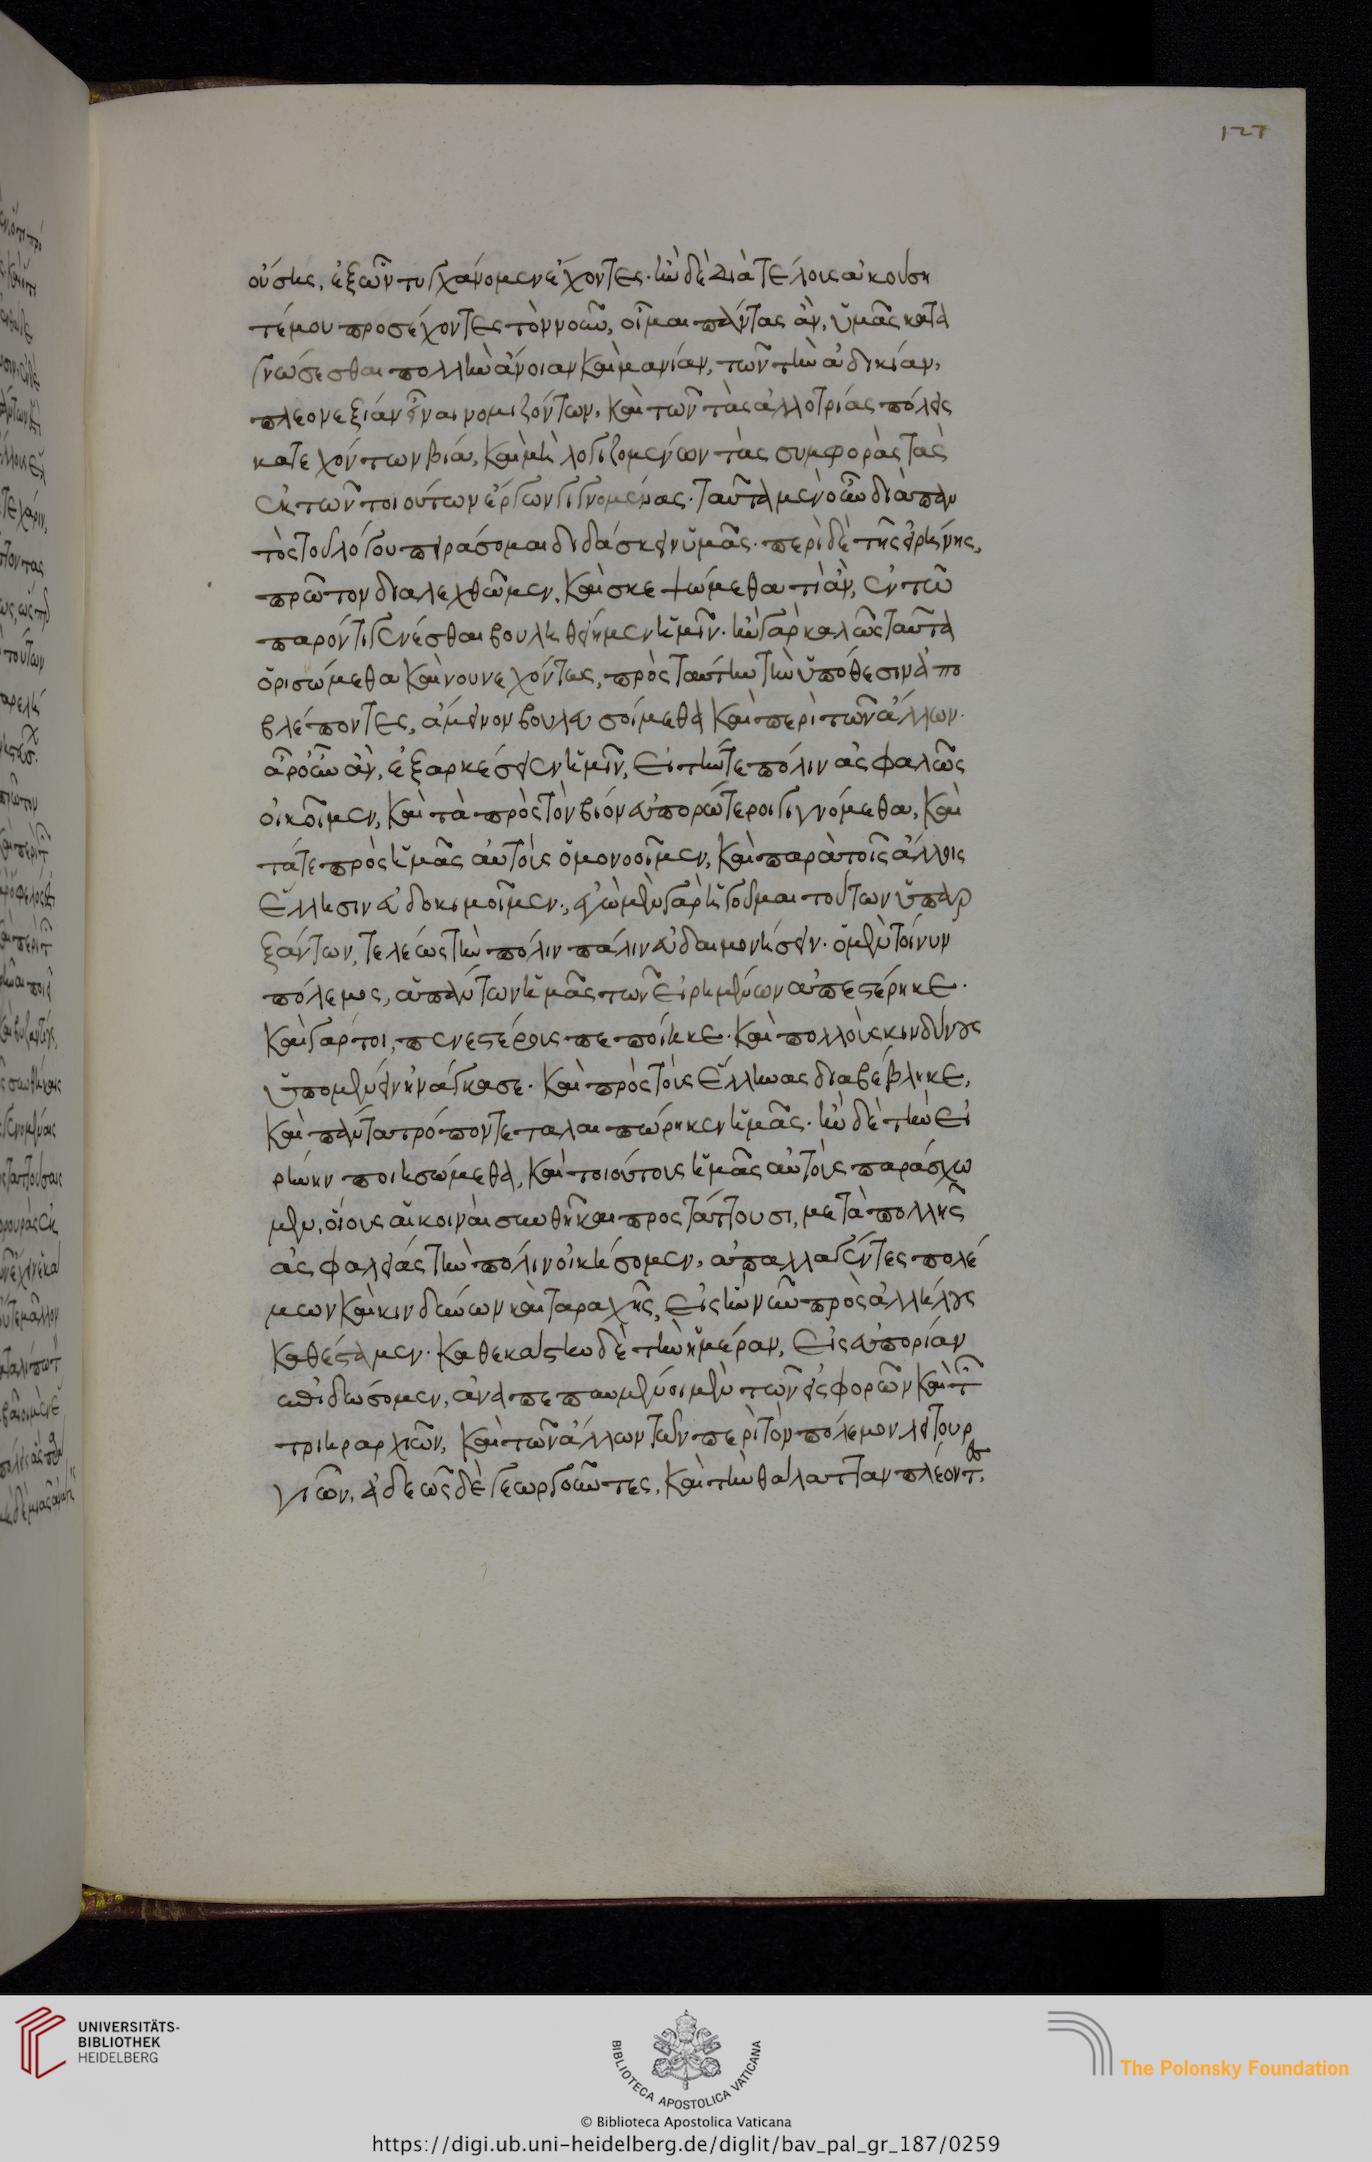 127
ούσης, ἐξ ὧν τυγχάνομεν ἔχοντες. ἢν δὲ διὰ τέλους ἀκούση
τέ μου προσέχοντες τὸν νοῦν, οἶμαι πάντας ἂν, ὑμᾶς κατα
γνώσεσθαι πολλὴν ἄνοιαν καὶ μανίαν, τῶν τὴν ἀδικίαν,
πλεονεξίαν εἶναι νομιζόντων, καὶ τῶν τὰς ἀλλοτρίας πόλεις
κατεχόντων βία, καὶ μὴ λογιζομένων τὰς συμφορὰς τὰς
ἐκ τῶν τοιούτων ἔργων γιγνομένας. ταῦτα μὲν οὖν διὰ παν
τὸς τοῦ λόγου πειράσομαι διδάσκειν ὑμᾶς. περὶ δὲ τῆς εἰρήνης,
πρῶτον διαλεχθῶμεν, καὶ σκεψώμεθα τί ἂν, ἐν τῶ
παρόντι γενέσθαι βουληθείημεν ἡμῖν. ἢν γὰρ καλῶς ταῦτα
ὁρισώμεθα καὶ νουνεχόντως, πρὸς ταύτην τὴν ὑπόθεσιν ἀπο
βλέποντες, ἄμεινον βουλευσοίμεθα καὶ περὶ τῶν ἄλλων.
ἆρ οὖν ἂν, ἐξαρκέσειεν ἡμῖν, εἰ τήν τε πόλιν ἀσφαλῶς
οἰκοῖμεν, καὶ τὰ πρὸς τὸν βίον εὐπορώτεροι γιγνόμεθα, καὶ
τά τε πρὸς ἡμᾶς αὐτοὺς ὁμονοοῖμεν, καὶ παρὰ τοῖς ἄλλοις
ἕλλησιν εὐδοκιμοῖμεν., ἐγὼ μὲν γὰρ ἡγοῦμαι τούτων ὑπαρ
ξάντων, τελέως τὴν πόλιν πάλιν εὐδαιμονήσειν. ὁ μὲν τοίνυν
πόλεμος, ἁπάντων ἡμᾶς τῶν εἰρημένων ἀπεστέρηκε.
καὶ γάρ τοι, πενεστέρους πεποίηκε. καὶ πολλοὺς κινδύνους
ὑπομένειν ἠνάγκασε. καὶ πρὸς τοὺς ἕλληνας διαβέβληκε,
καὶ πάντα τρόπον τεταλαιπώρηκεν ἡμᾶς. ἢν δὲ τὴν εἰ
ρήνην ποιησώμεθα, καὶ τοιούτους ἡμᾶς αὐτοὺς παράσχω
μεν, οἵους αἱ κοιναὶ συνθῆκαι προστάττουσι, μετὰ πολλῆς
ἀσφαλείας τὴν πόλιν οἰκήσομεν, ἀπαλλαγέντες πολέ
μων καὶ κινδύνων καὶ ταραχῆς, εἰς ἣν νῦν πρὸς ἀλλήλους
καθέσταμεν. καθεκάστην δὲ τὴν ἡμέραν, εἰς εὐπορίαν
ἐπιδώσομεν, ἀναπεπαυμένοι μὲν τῶν εἰσφορῶν καὶ τῶν
τριηραρχιῶν, καὶ τῶν ἄλλων τῶν περὶ τὸν πόλεμον λειτουρ
γιῶν, ἀδεῶς δὲ γεωργοῦντες, καὶ τὴν θάλατταν πλέοντες,
UNIVERSITÄTS-
BIBLIOTHEK
HEIDELBERG
BIBLIOTECA APOSTOLICA VATICANA
The Polonsky Foundation
© Biblioteca Apostolica Vaticana
https://digi.ub.uni-heidelberg.de/diglit/bav_pal_gr_187/0259